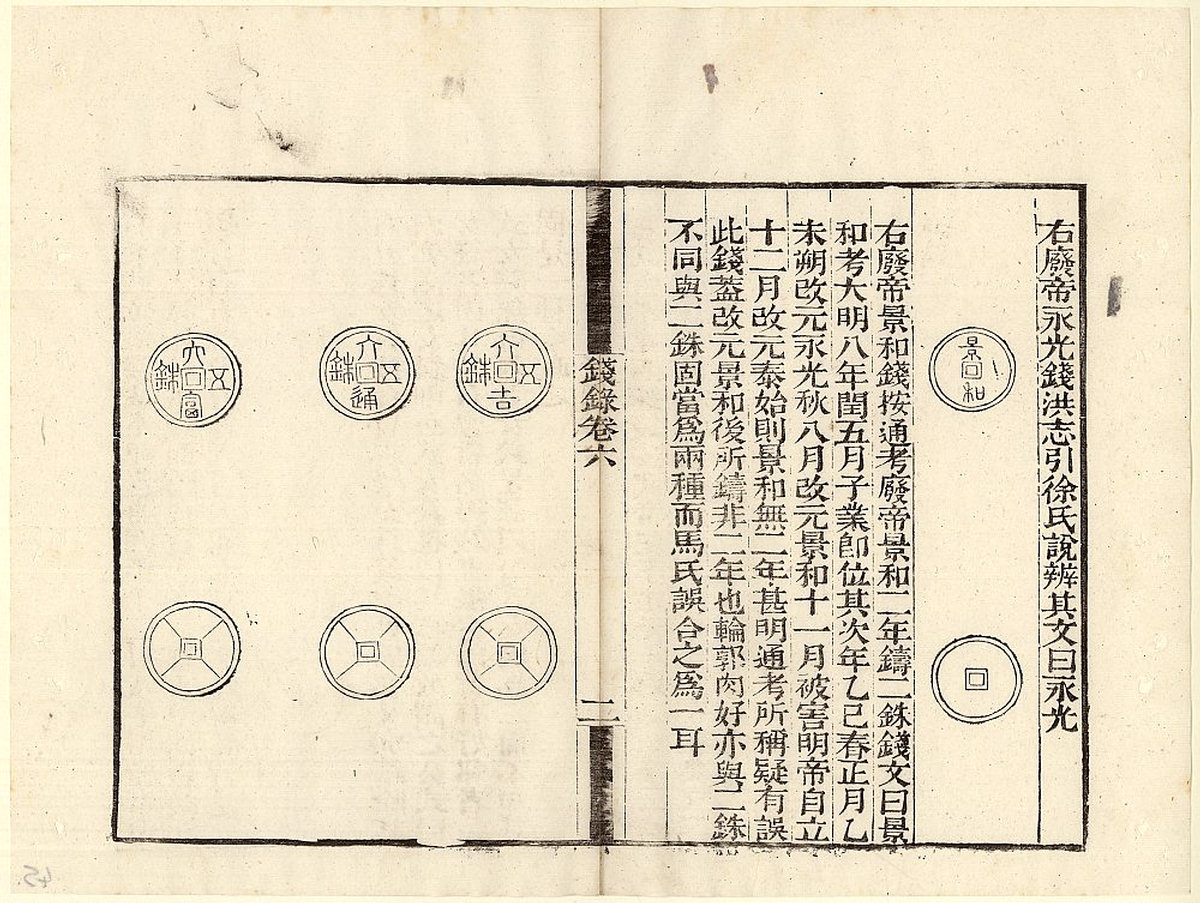 右廢帝永光錢洪志引徐氏說辨其文曰永光
景和
右廢帝景和錢按通考廢帝景和二年鑄二銖錢文曰景
和考大明八年閏五月子業卽位其次年乙巳春正月乙
未朔改元永光秋八月改元景和十一月被害明帝自立
十二月改元泰始則景和無二年甚明通考所稱疑有誤
此錢蓋改元景和後所鑄非二年也輪郭肉好亦與二銖
不同與二銖固當爲兩種而馬氏誤合之爲一耳
錢錄卷六
二
大吉五銖
大通五銖
大富五銖
45